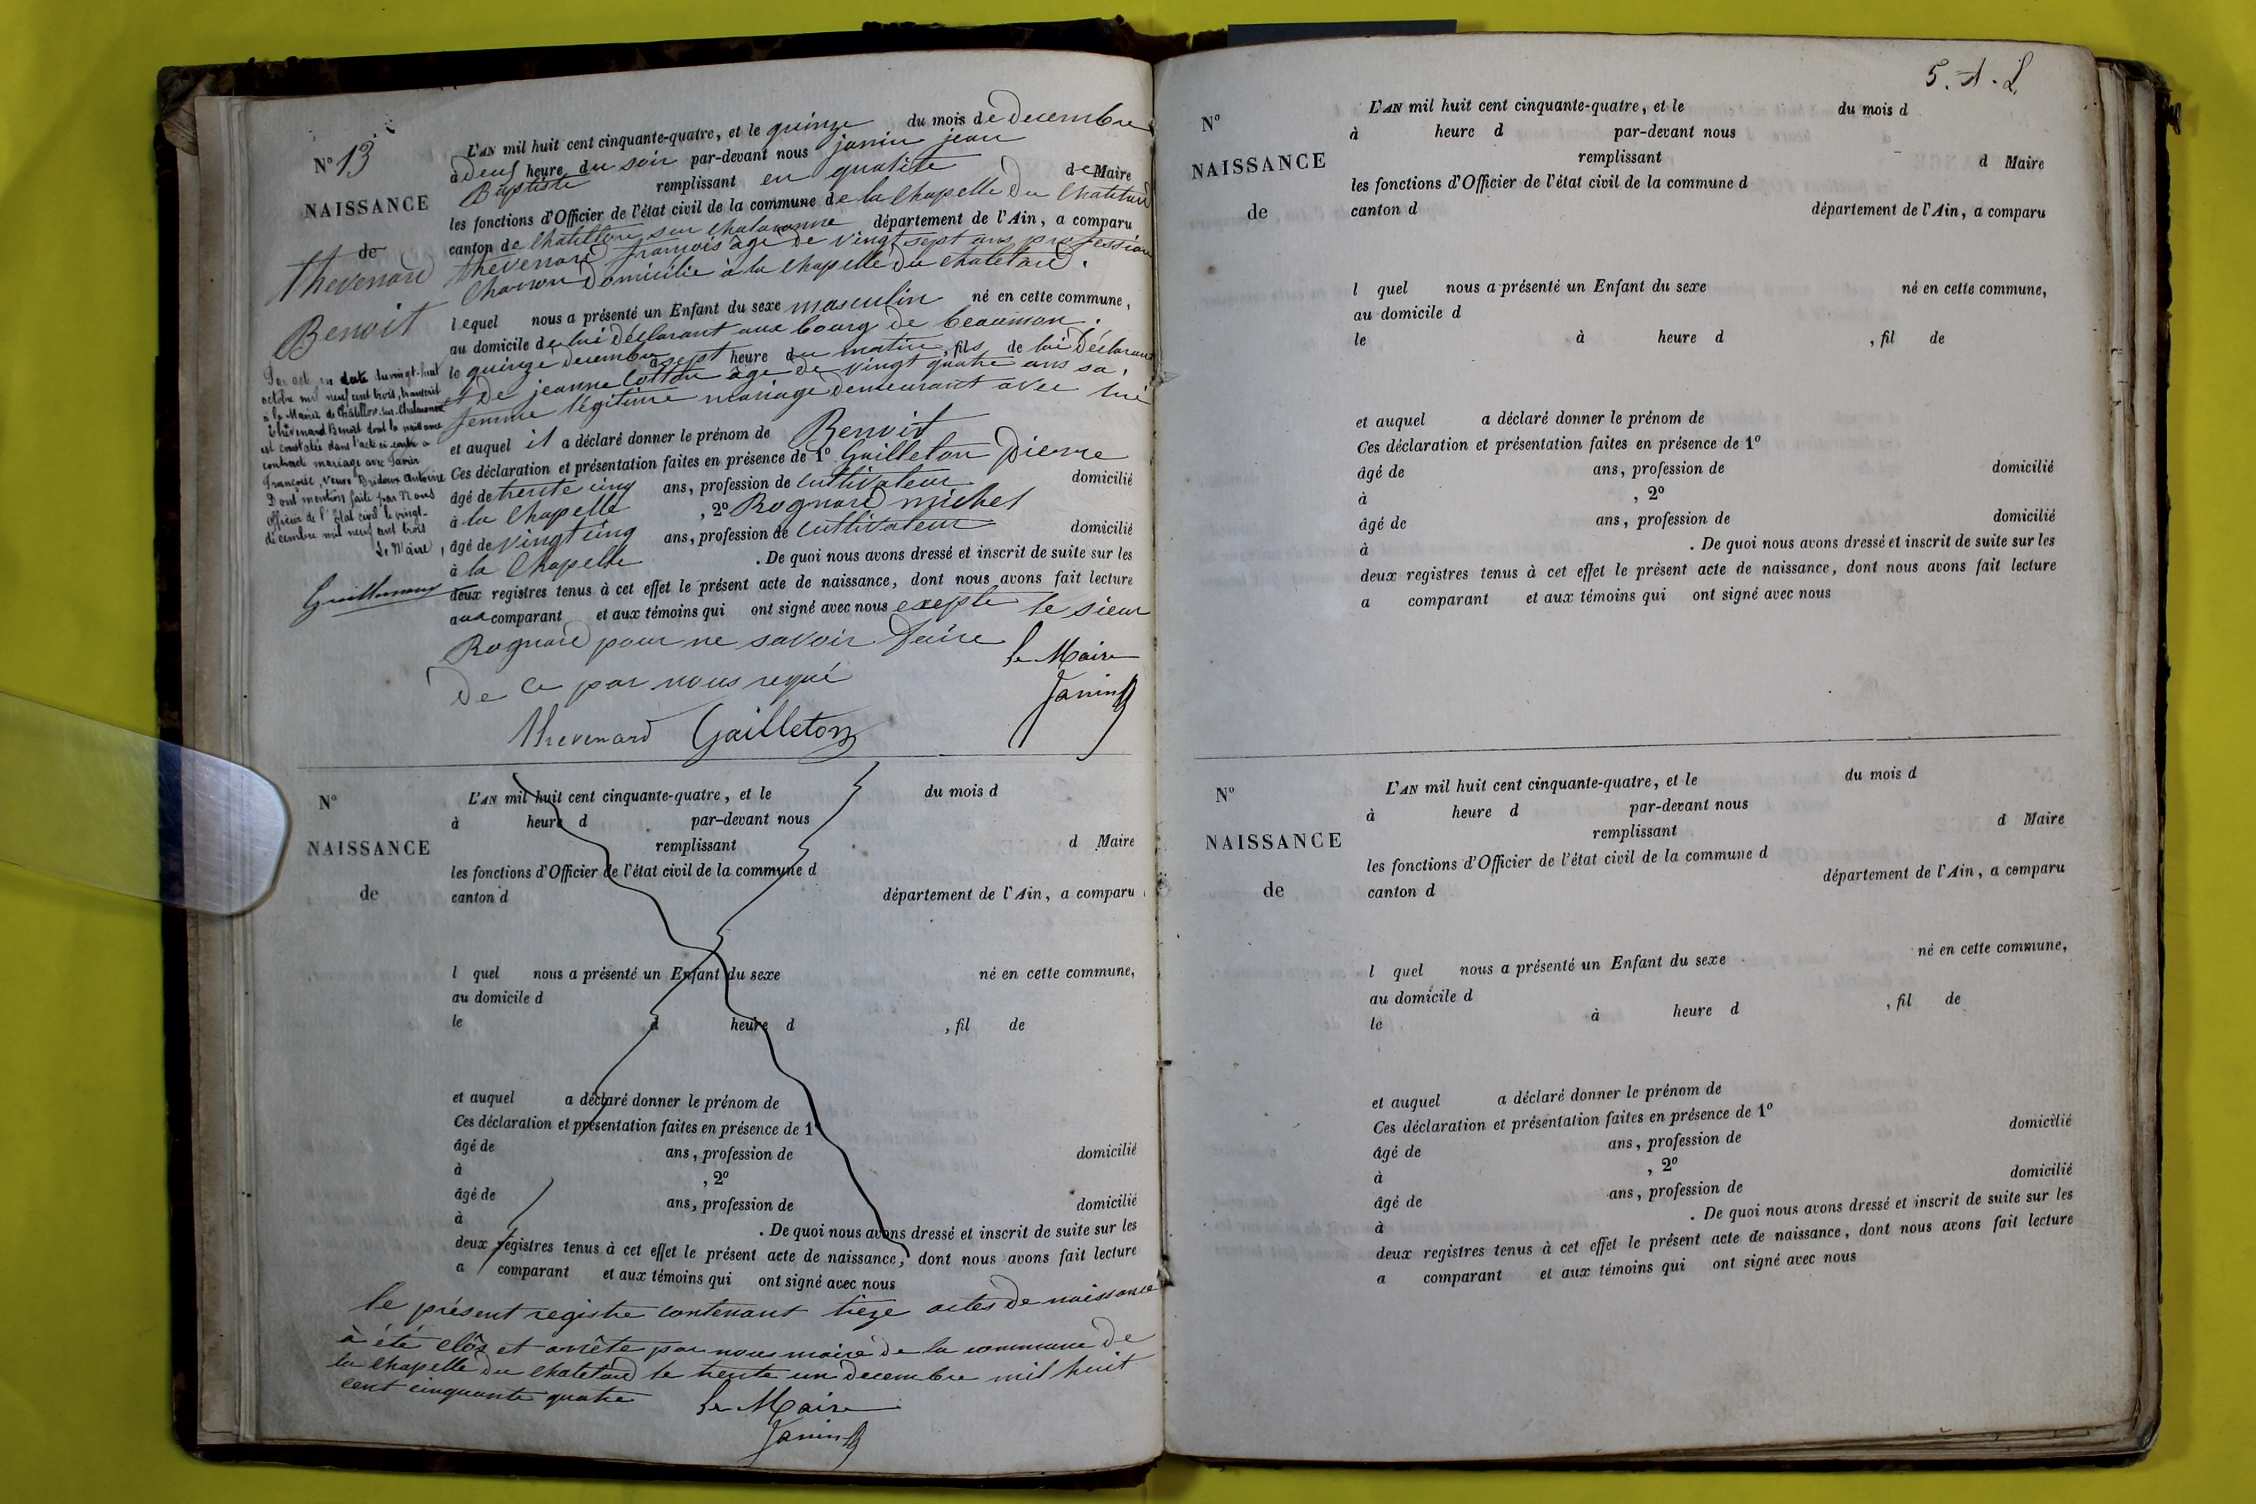 N° 13
NAISSANCE
de
thevenard
Benoit
L'AN mil huit cent cinquante-quatre, et le quinze du mois de decembre
à deux heure du soir par-devant nous janin jean
Baptiste remplissant en qualité de Maire
les fonctions d'Officier de l'état civil de la commune de la Chapelle du Chatelard
canton de Châtillon sur chalaronne département de l'Ain, a comparu
thevenard francois âgé de vingt sept ans profession
Charron domicilié à la chapelle du chatelard.
lequel nous a présenté un Enfant du sexe masculin né en cette commune,
au domicile de lui déclarant aux bourg de beaumon.
le quinze decembre à sept heure du matin, fils de lui déclarant
et de jeanne Cotton âgé de vingt quatre ans sa
femme légitime mariage demeurant avec lui
et auquel il a déclaré donner le prénom de Benoit
Ces déclaration et présentation faites en présence de 1° Gailleton Pierre
âgé de trente cinq ans, profession de cultivateur domicilié
à la Chapelle , 2° Rognard michel
âgé de vingt cinq ans, profession de cultivateur domicilié
à la Chapelle . De quoi nous avons dressé et inscrit de suite sur les
deux registres tenus à cet effet le présent acte de naissance, dont nous avons fait lecture
aux comparant et aux témoins qui ont signé avec nous excepté le sieur
Rognard pour ne savoir faire
de ce par nous requi
le Maire
Janin
thevenard Gailleton
Par acte en date du vingt-huit
octobre mil neuf cent trois, transcrit
à la Mairie de Châtillon-sur-Chalaronne
Thévenard Benoit dont la naissance
est constatée dans l'acte ci-contre a
contracté mariage avec Janin
Françoise, Veuve Bridoux Antoine
Dont mention faite par Nous
Officier de l'Etat civil le vingt-
décembre mil neuf cent trois
Le Maire,
N°
NAISSANCE
de
L'AN mil huit cent cinquante-quatre, et le du mois d
à heure d par-devant nous
remplissant d Maire
les fonctions d'Officier de l'état civil de la commune d
canton d département de l'Ain, a comparu
l quel nous a présenté un Enfant du sexe né en cette commune,
au domicile d
le à heure d , fil de
et auquel a déclaré donner le prénom de
Ces déclaration et présentation faites en présence de 1°
âgé de ans, profession de domicilié
à , 2°
âgé de ans, profession de domicilié
à . De quoi nous avons dressé et inscrit de suite sur les
deux registres tenus à cet effet le présent acte de naissance, dont nous avons fait lecture
a comparant et aux témoins qui ont signé avec nous
le présent registre contenant treze actes de naissance
à été clôs et arrêté par nous maire de la commune de
la Chapelle du Chatelard le trente un decembre mil huit
cent cinquante quatre
le Maire
Janin
N°
NAISSANCE
de
L'AN mil huit cent cinquante-quatre, et le du mois d
à heure d par-devant nous
remplissant d Maire
les fonctions d'Officier de l'état civil de la commune d
canton d département de l'Ain, a comparu
l quel nous a présenté un Enfant du sexe né en cette commune,
au domicile d
le à heure d , fil de
et auquel a déclaré donner le prénom de
Ces déclaration et présentation faites en présence de 1°
âgé de ans, profession de domicilié
à , 2°
âgé de ans, profession de domicilié
à . De quoi nous avons dressé et inscrit de suite sur les
deux registres tenus à cet effet le présent acte de naissance, dont nous avons fait lecture
a comparant et aux témoins qui ont signé avec nous
N°
NAISSANCE
de
L'AN mil huit cent cinquante-quatre, et le du mois d
à heure d par-devant nous
remplissant d Maire
les fonctions d'Officier de l'état civil de la commune d
canton d département de l'Ain, a comparu
l quel nous a présenté un Enfant du sexe né en cette commune,
au domicile d
le à heure d , fil de
et auquel a déclaré donner le prénom de
Ces déclaration et présentation faites en présence de 1°
âgé de ans, profession de domicilié
à , 2°
âgé de ans, profession de domicilié
à . De quoi nous avons dressé et inscrit de suite sur les
deux registres tenus à cet effet le présent acte de naissance, dont nous avons fait lecture
a comparant et aux témoins qui ont signé avec nous